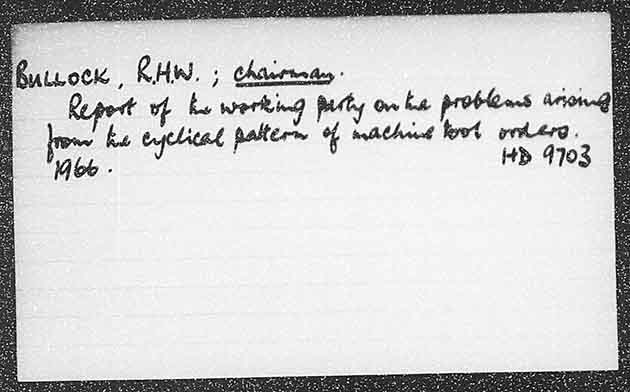 BULLOCK, R.H.W. ; chairman.
Report of the working party on the problems arising
from the cyclical pattern of machine tool orders.
1966. HD 9703